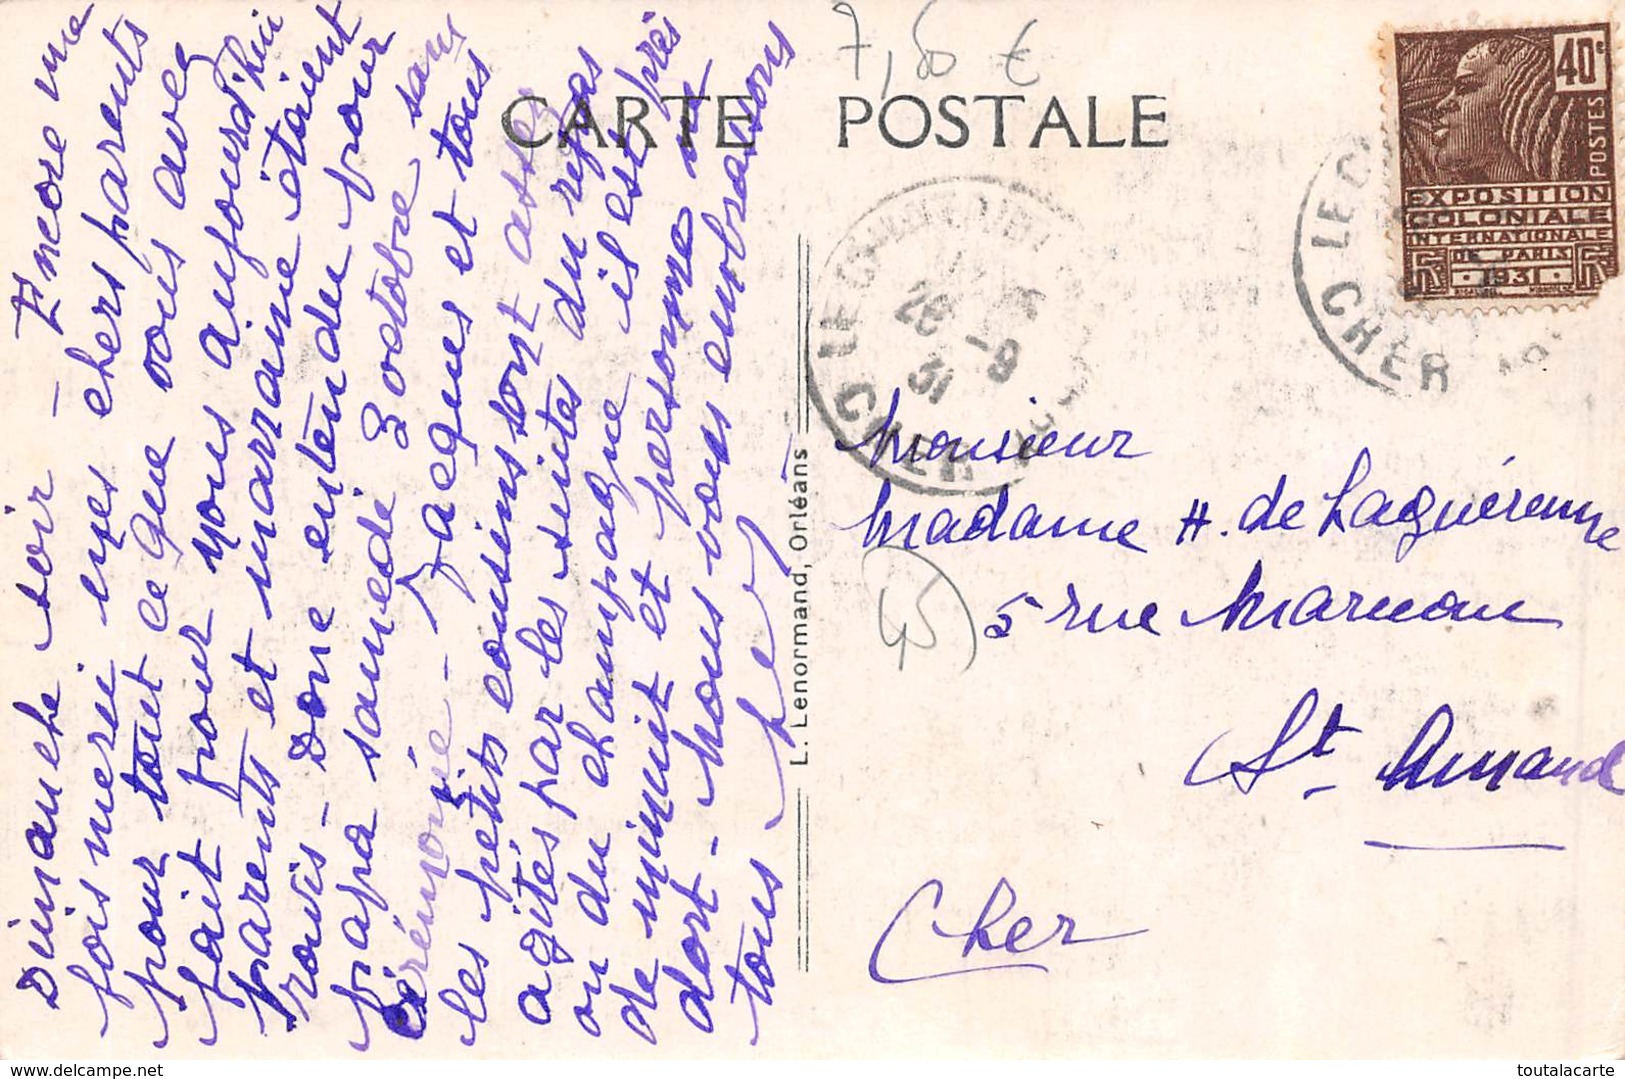 Dimanche soir - Encore une
fois merci mes chers parents
pour tout ce que vous avez
fait pour nous aujourd'hui
parents et marraine étaient
ravis - Donc entendu pour
papa samedi 3 octobre sans
cérémonie - Jacques et tous
les petits cousins sont assez
agités par les suites du repas
ou du champagne il est près
de minuit et personne ne
dort - Nous vous embrassons
tous
CARTE POSTALE
7,50 €
40c
POSTES
EXPOSITION
COLONIALE
INTERNATIONALE
DE PARIS
1931
CHER
28 -9
31
CHER
L. Lenormand, Orléans
Monsieur
Madame H. de Laguérenne
5 rue Marmon
St. Amand
Cher
45
toutalacarte